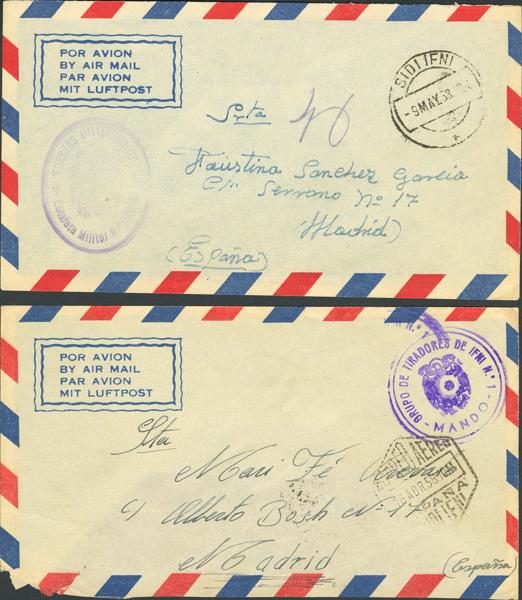 POR AVION
BY AIR MAIL
PAR AVION
MIT LUFTPOST
SIDI IFNI
-9 MAY. 58
Srta
Faustina Sanchez Garcia
C/ Serrano Nº 17
Madrid)
(España)
Estafeta Militar
POR AVION
BY AIR MAIL
PAR AVION
MIT LUFTPOST
Nº 1
GRUPO DE TIRADORES DE IFNI Nº 1
- MANDO -
Srta
Mari Fé
C/ Alberto Bosh Nº 17
Madrid
(España)
CORREO AEREO
ABR. 58